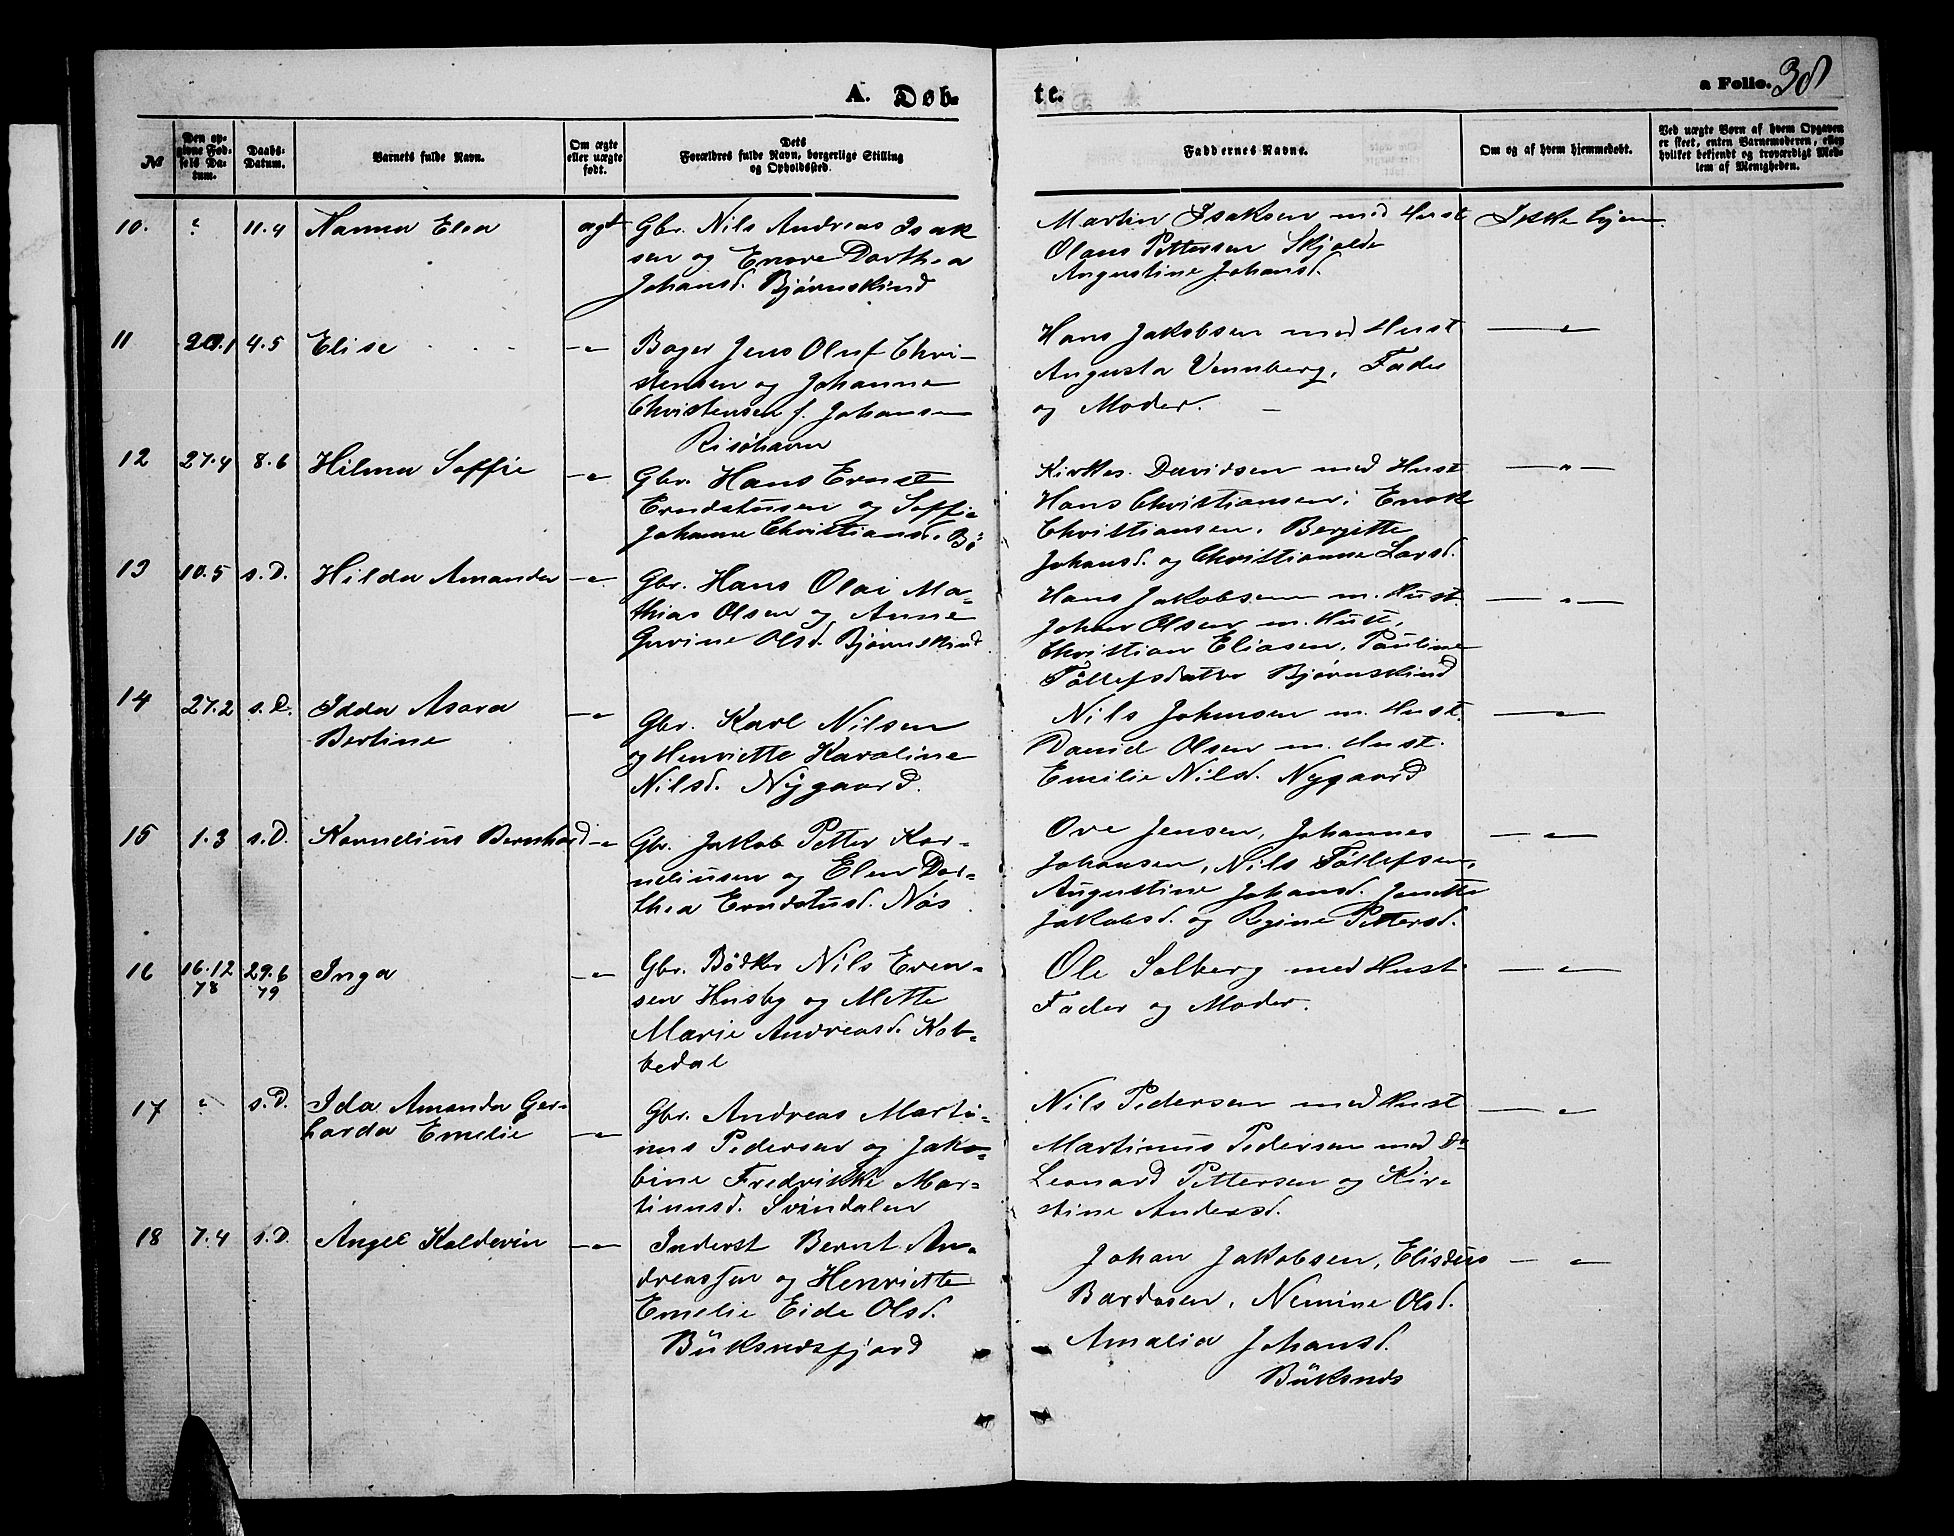 A. Døb-
te.
a Folio. 38
№
Den op-
givne Fød-
sels Da-
tum.
Daabs-
Datum.
Barnets fulde Navn.
Om ægte
eller uægte
født.
Dets
Forældres fulde Navn, borgerlige Stilling
og Opholdssted.
Faddernes Navne.
Om og af hvem hjemmedøbt.
Ved uægte Børn af hvem Opgaven
er skeet, enten Barnemoderen, eller
hvilket bekjendt og troværdigt Med-
lem af Menigheden.
10. 11.4 Hanna Elea ægt Gbr. Nils Andreas Isak
sen og Enore Dorthea
Johansd. Bjørnskind
Martin Isaksen med Hust
Olaus Pettersen Skjolde
Angustine Johansd.
Ikke hjem.
11 20.1 4.5 Elise . . . —"— Bager Jens Oluf Chri-
stensen og Johanne
Christensen f. Johansen
Risøhavn
Hans Jakobsen med Hust
Augusta Vennberg, Fader
og Moder. —
—"—
12 27.4 8.6 Hilma Soffie —"— Gbr. Hans Ernst
Erndstusen og Soffie
Johanne Christiansd. Bö
Kirkes. Davidsen med Hust
Hans Christiansen, Enok
Christiansen, Bergitte
Johansd. og Christianne Larsd.
—"—
13 10.5 s.D. Hilda Amanda —"— Gbr. Hans Olai Ma-
thias Olsen og Anne
Gurine Olsd. Bjørnskind
Hans Jakobsen m. Hust.
Johan Olsen m. Hust,
Christian Eliasen, Pauline
Tollefsdatter Bjørnskind
—"—
14 27.2 s.D. Idda Asora
Bertine —"— Gbr. Karl Nilsen
og Henriette Karoline
Nilsd. Nygaard.
Nils Johnsen m. Hust.
David Olsen m. Hust.
Emilie Nilsd. Nygaard
—"—
15 1.3 s.D. Kornelius Bernhard —"— Gbr. Jakob Petter Kor-
neliusen og Elen Dor-
thea Erndstusd. Nös
Ove Jensen, Johannes
Johansen, Nils Tollefsen,
Augustine Johansd. Jenette
Jakobsd. og Regine Pettersd.
—"—
16 16.12
78 29.6
79 Inga —"— Gbr. Bödker Nils Even-
sen Husby og Mette
Marie Andreasd. Kob-
bedal
Ole Solberg med Hust
Fader og Moder.
—"—
17 s.D. Ida Amanda Ger-
harda Emelie —"— Gbr. Andreas Marti-
nus Pedersen og Jako-
bine Fredrikke Mar-
tinusd. Svindalen
Nils Pedersen med Hust
Martinus Pedersen med Do
Leonard Pettersen og Kir-
stine Andersd.
—"—
18 7.4 s.D. Angel Kalderin —"— Inderst Bernt An-
dreassen og Henriette
Emelie Eide Olsd.
Büksnesfjord
Johan Jakobsen, Elisæus
Bardosen, Nemine Olsd.
Amalia Johansd.
Büksnes
—"—